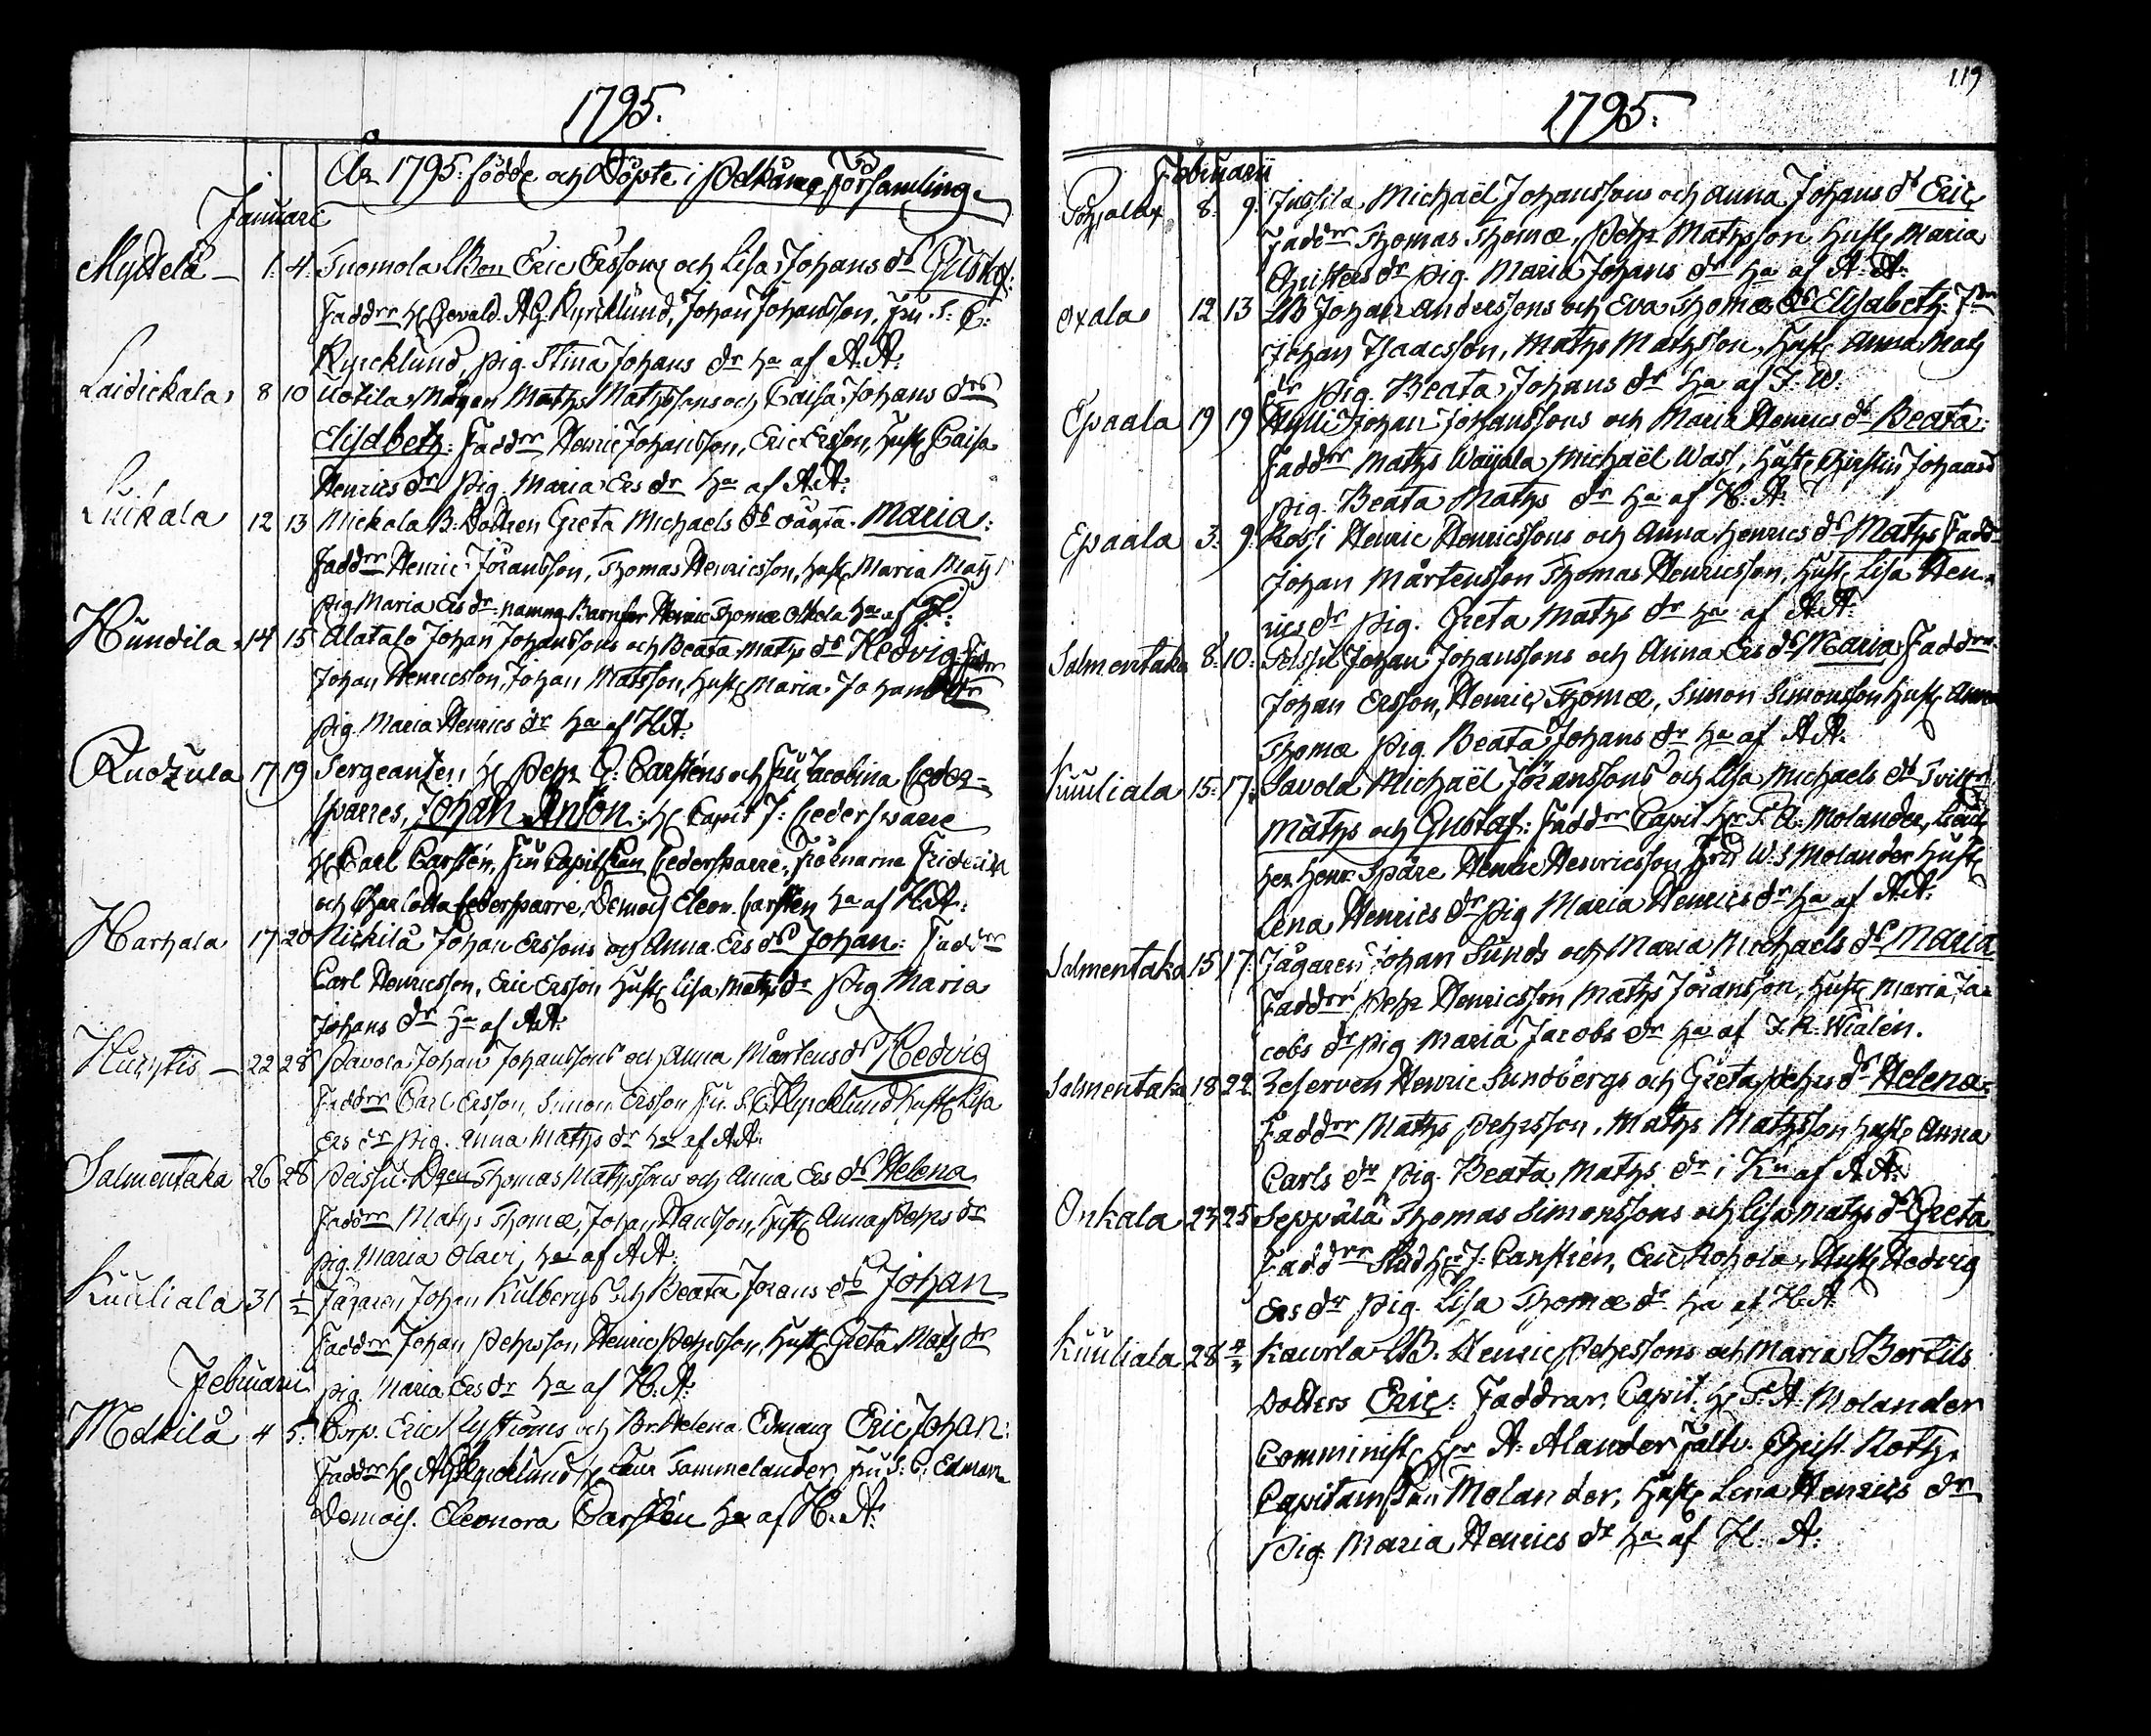 1795.
År 1795. födde och Döpte i Pelkäne Församling.
Januarii
Myttelä - 1. 4. Tuomola Bon Eric Erssons och Lisa Johans dr Gustaf:
Faddrar H Gevald. A.G. Kyrcklund, Johan Johansson, Fru S. C.
Kyrcklund, pig. Stina Johans dr ha af A.A:
Laidickala 8 10 Uotila Mågen Maths Mathssons och Caisa Johans drs
Elisabeth: Faddrr Henric Johansson, Eric Ersson, Hust Caisa
Henrics dr pig. Maria Ers dr ha af A.A:
Luikala 12 13 Nickala B. Dottren Greta Michaels dr oägta. Maria:
Faddrr Henric Jöransson, Thomas Henricsson, Hust Maria Mats
pig Maria Ers dr namng Barnfar Henric Thomæ ha af
Kundila 14 15 Alatalo Johan Johanssons och Beata Maths dr Hedvig Faddrr
Johan Henricsson, Johan Matsson, Hust Maria Johans dr
pig. Maria Henrics dr ha af H.A:
17 19 Sergeanten H Pehr G: Carsténs och Fru Jacobina Ceder=
sparres, Johan Anton: H Capit J: Cedersparre
H Carl Carstén, Fru Capitskan Cedersparre, Frökarna Frideric
och Charlotta Cedersparre, Demois Eleon. Carstén ha af H.A:
Harhala 17 20 Nickilä Johan Erssons och Anna Ers dr Johan: Faddrr
Carl Henricsson, Eric Ersson Hust Lisa Maths dr pig Maria
Johans dr ha af A.A:
22 28 Pavola Johan Johanssons och Anna Mårtens dr Hedvig
Faddrr Carl Ersson, Simon Ersson Fru S.C. Kyrcklund Hust Lisa
Ers dr pig. Anna Maths dr ha af A.A:
Salmentaka 26 28 Peissu Thomas Mathssons och Anna Ers dr Helena
Faddrr Maths Thomæ, Johan Hansson, Hust Anna Pehrs dr
pig. Maria Olavi, ha af A.A:
Kuuliala 31 1/2 Jägaren Johan Kulbergs och Beata Jörans dr Johan
Faddrr Johan Pehrsson, Henric Pehrsson, Hust Greta Mats dr
pig. Maria Ers dr ha af H.A:
Februarii
Mälkilä 4 5. Corp. Eric Nyströms och Br. Helena Edmans Eric Johan:
Faddrr H A.G. Kyrcklund H Laur Tammelander, Fru S. C. Edman
Demois. Eleonora Carstén ha af H. A:
119
1795.
Februarii
Pohjala 8. 9. Jussila Michaël Johanssons och Anna Johans dr Eric
Faddrr Thomas Thomæ, Pehr Mathsson Hust Maria
Christers dr pig. Maria Johans dr ha af A. A:
Oxala 12 13 B Johan Anderssons och Eva Thomæ dr Elisabeth: Fdr
Johan Isaacsson, Maths Mathsson, Hust Anna Mats
dr pig. Beata Johans dr ha af F. W:
Epaala 19 19 Hylli Johan Johanssons och Maria Henrics dr Beata:
Faddrr Maths Wäyälä Michaël Wast, Hust Christin Johans dr
pig. Beata Maths dr ha af H. A:
Epaala 3. 9. Rossi Henric Henricssons och Anna Henrics dr Maths Fadd
Johan Mårtensson Thomas Henricsson, Hust Lisa Hen=
rics dr pig. Greta Maths dr ha af A.A:
Salmentaka 8. 10. Peissu Johan Johanssons och Anna Ers dr Maria Faddrr
Johan Ersson, Henric Thomæ, Simon Simonsson Hust Anna
Thomæ pig. Beata Johans dr ha af A.A:
Kuuliala 15. 17. Savola Michaël Jöranssons och Lisa Michaels dr Tvill
Maths och Gustaf: Faddrr Capit Hr F.A. Molander, Lieut
Her Henr Späre Henric Henricsson Fru W. S Molander Hust
Lena Henrics dr pig Maria Henrics dr ha af A.A:
Salmentaka 15 17 Jägaren Johan Sunds och Maria Michaels dr Maria
Faddrr Pehr Henricsson Maths Jöransson, Hust Maria Ja=
cobs dr pig Maria Jacobs dr ha af F. R. Widlén.
Salmentaka 18 22 Reserven Henric Sundbergs och Greta Pehrs dr Helena:
Faddrr Maths Pehrsson, Maths Mathsson Hust Anna
Carls dr pig. Beata Maths dr i Ku af A.A:
Onkala 23 25 Seppälä Thomas Simonssons och Lisa Maths dr Greta
Faddrr Stud Hr J. Carstén, Eric Rohola, Hust Hedvig
Ers dr pig. Lisa Thomæ dr ha af H.A:
Kuuliala 28 Kaurla B. Henric Pehrssons och Maria Bertils
Dotters Eric: Faddrar. Capit. H F. A. Molander
Comminist. Hr A. Alander Fältv. Christ. Roth.
Capitainskan Molander, Hust Lena Henrics dr
pig. Maria Henrics dr ha af H. A: